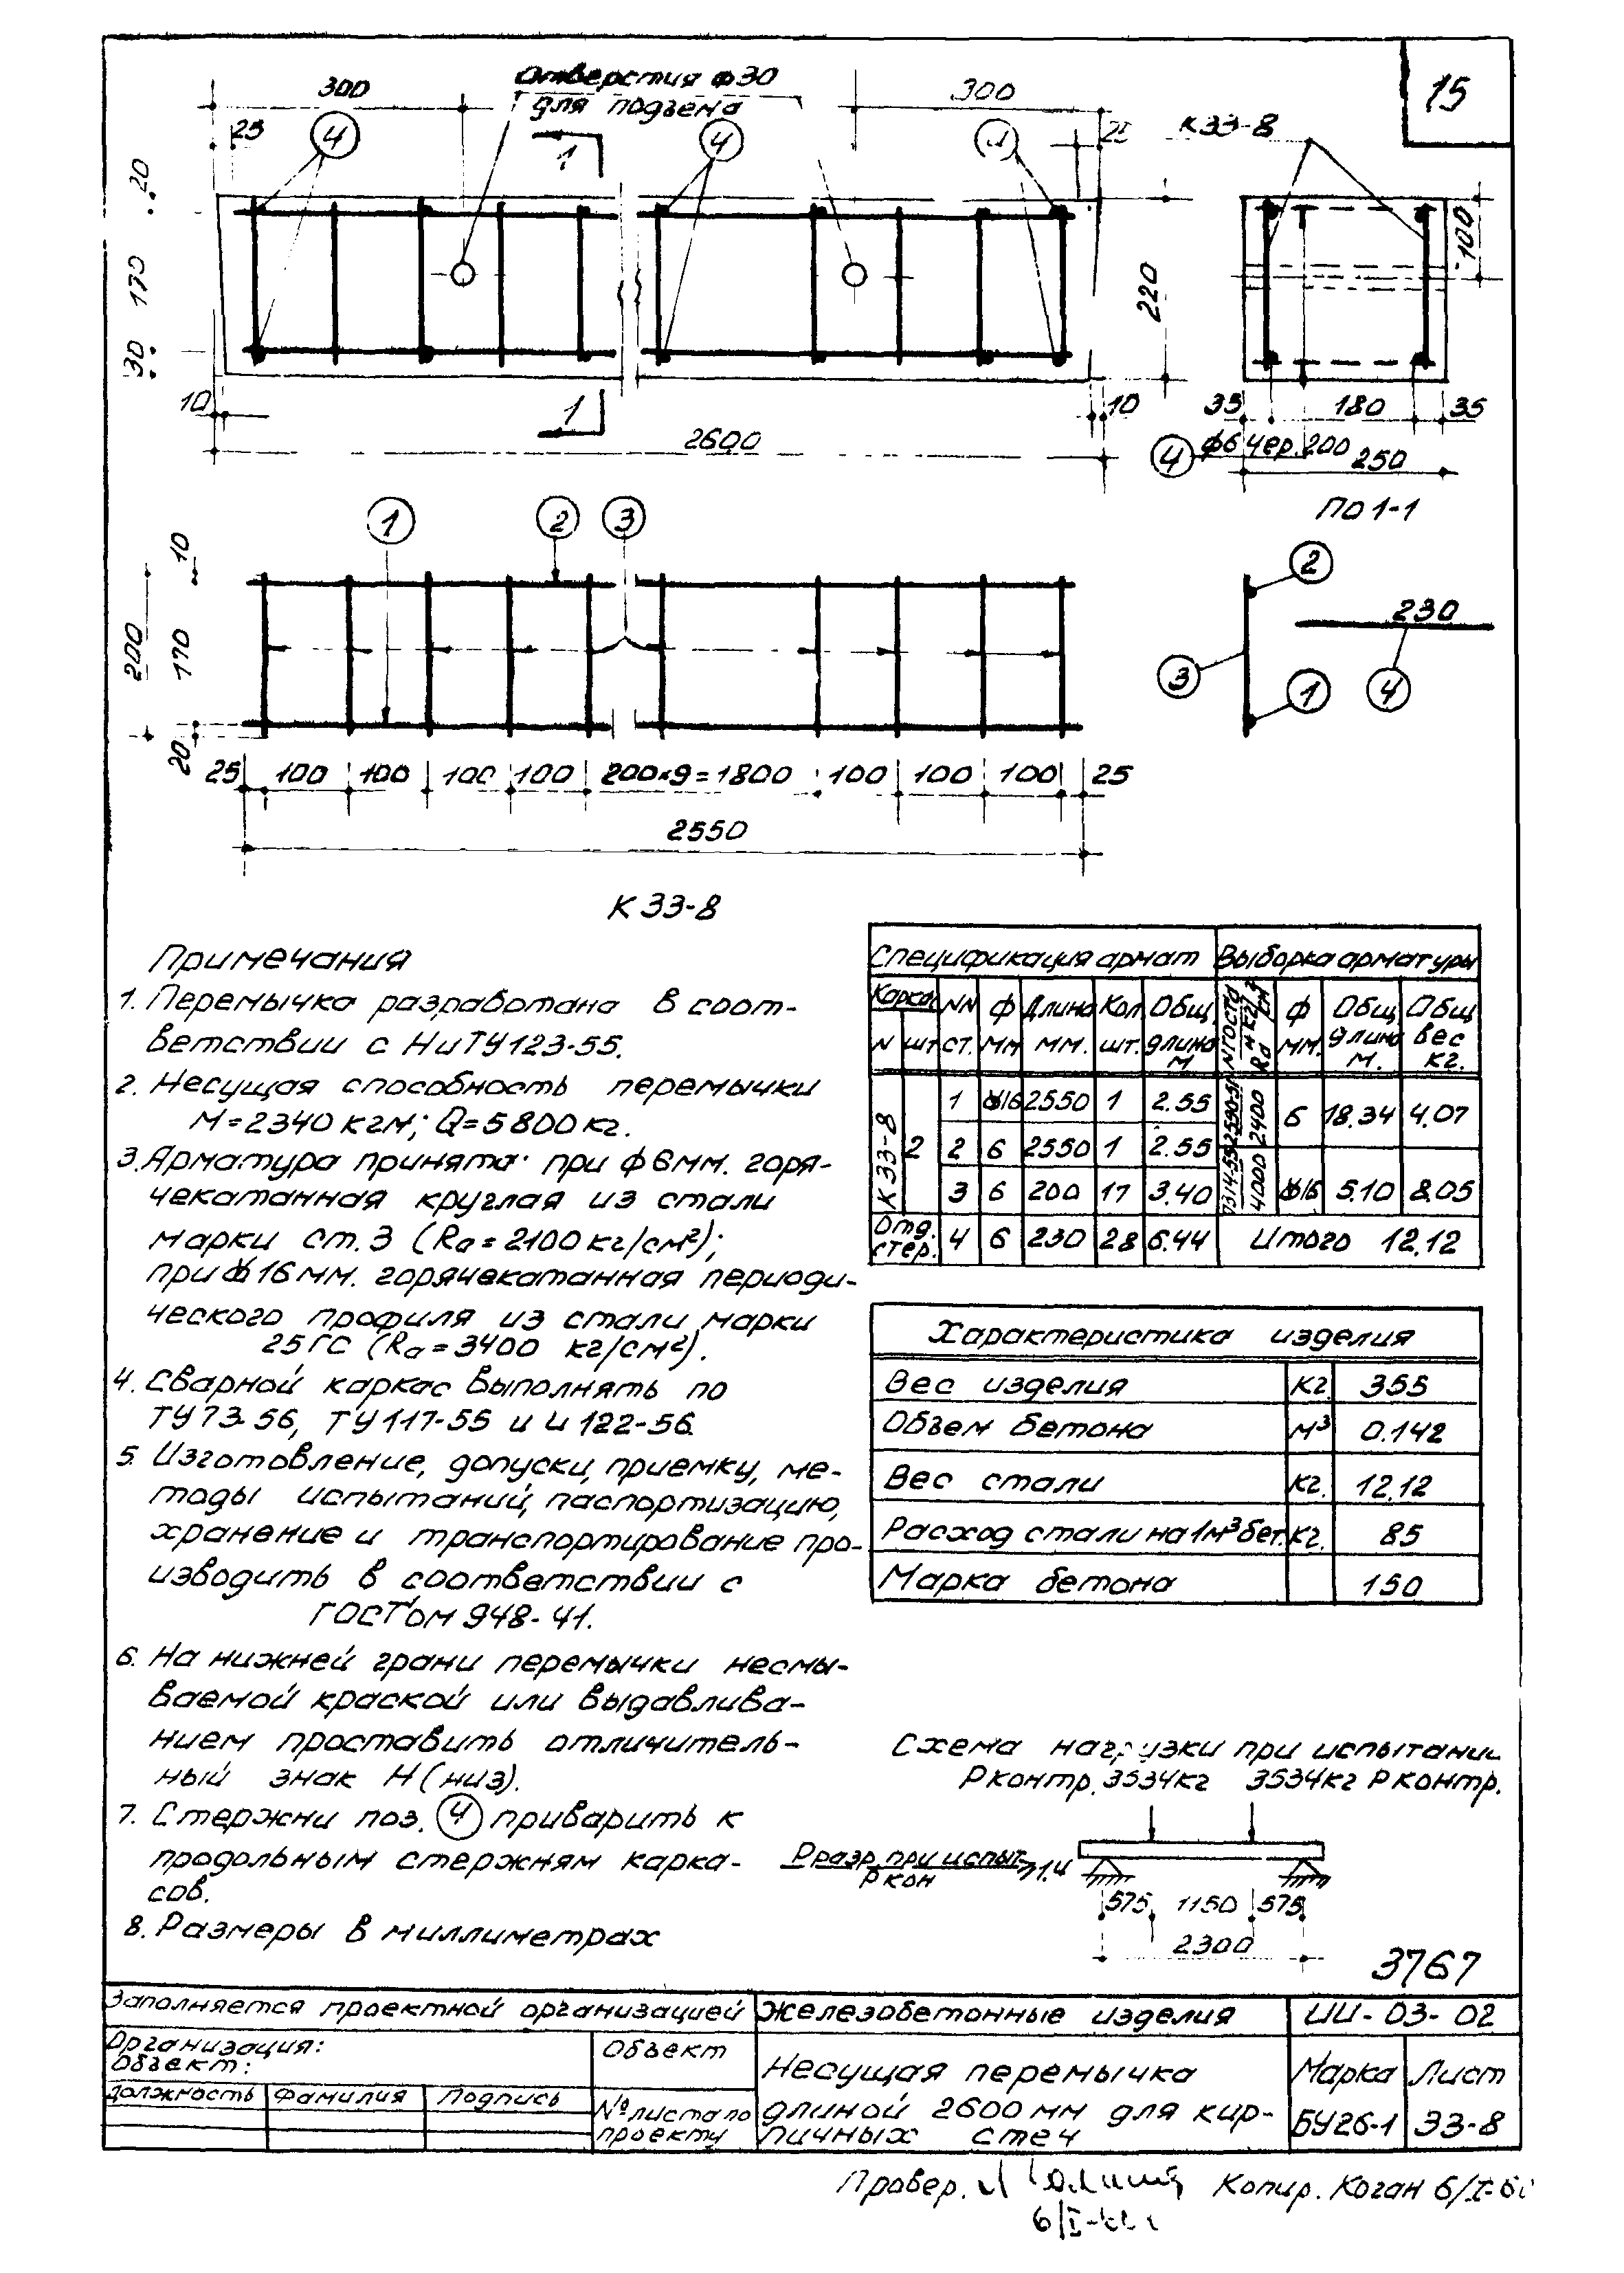 15
300
Отверстия ф30
для подъема
300
К33-8
25
4
1
4
4
25
20
170
30
220
100
10
1
2600
10
35
180
35
4
ф6 чер.200
250
по 1-1
1
2
3
10
200
170
20
2
230
3
1
4
25 100 100 100 100 200×9=1800 100 100 100 25
2550
К 33-8
Примечания
1. Перемычка разработана в соот-
ветствии с НиТУ 123-55.
2. Несущая способность перемычки
М=2340 кгм; Q=5800 кг.
3. Арматура принята: при ф 6 мм. горя-
чекатанная круглая из стали
марки ст. 3 (Ra=2100 кг/см²);
при ф 16 мм. горячекатанная периоди-
ческого профиля из стали марки
25ГС (Ra=3400 кг/см²).
4. Сварной каркас выполнять по
ТУ 73-56, ТУ 117-55 и и 122-56.
5. Изготовление, допуски, приемку, ме-
тоды испытаний, паспортизацию,
хранение и транспортирование про-
изводить в соответствии с
ГОСТ'ом 948-41.
6. На нижней грани перемычки несмы-
ваемой краской или выдавлива-
нием проставить отличитель-
ный знак Н (низ).
7. Стержни поз. 4 приварить к
продольным стержням карка-
сов.
8. Размеры в миллиметрах
Спецификация армат Выборка арматуры
Каркас NN ф Длина Кол Общ NГОСТа и кг/см² Ra ф Общ Общ
N шт ст. мм мм. шт. длина м мм. длина м. вес кг.
К 33-8 2 1 ф16 2550 1 2.55 2590-51 2400 6 18.34 4.07
2 6 2550 1 2.55
3 6 200 17 3.40 7314-55 4000 ф16 5.10 8.05
Отд. стер. 4 6 230 28 6.44 Итого 12.12
Характеристика изделия
Вес изделия кг. 355
Объем бетона м³ 0.142
Вес стали кг. 12.12
Расход стали на 1м³ бет. кг. 85
Марка бетона 150
Схема нагрузки при испытании
Р контр. 3534кг 3534кг Р контр.
Р разр. при испыт.
Р кон
≥1.4
575 1150 575
2300
3767
Заполняется проектной организацией
Организация:
Объект:
Объект
должность Фамилия Подпись
№ листа по
проекту
Железобетонные изделия
ИИ-03-02
Несущая перемычка
длиной 2600 мм для кир-
пичных стен
Марка Лист
БУ26-1 33-8
Провер.
Копир. Коган 6/I-
6/I-